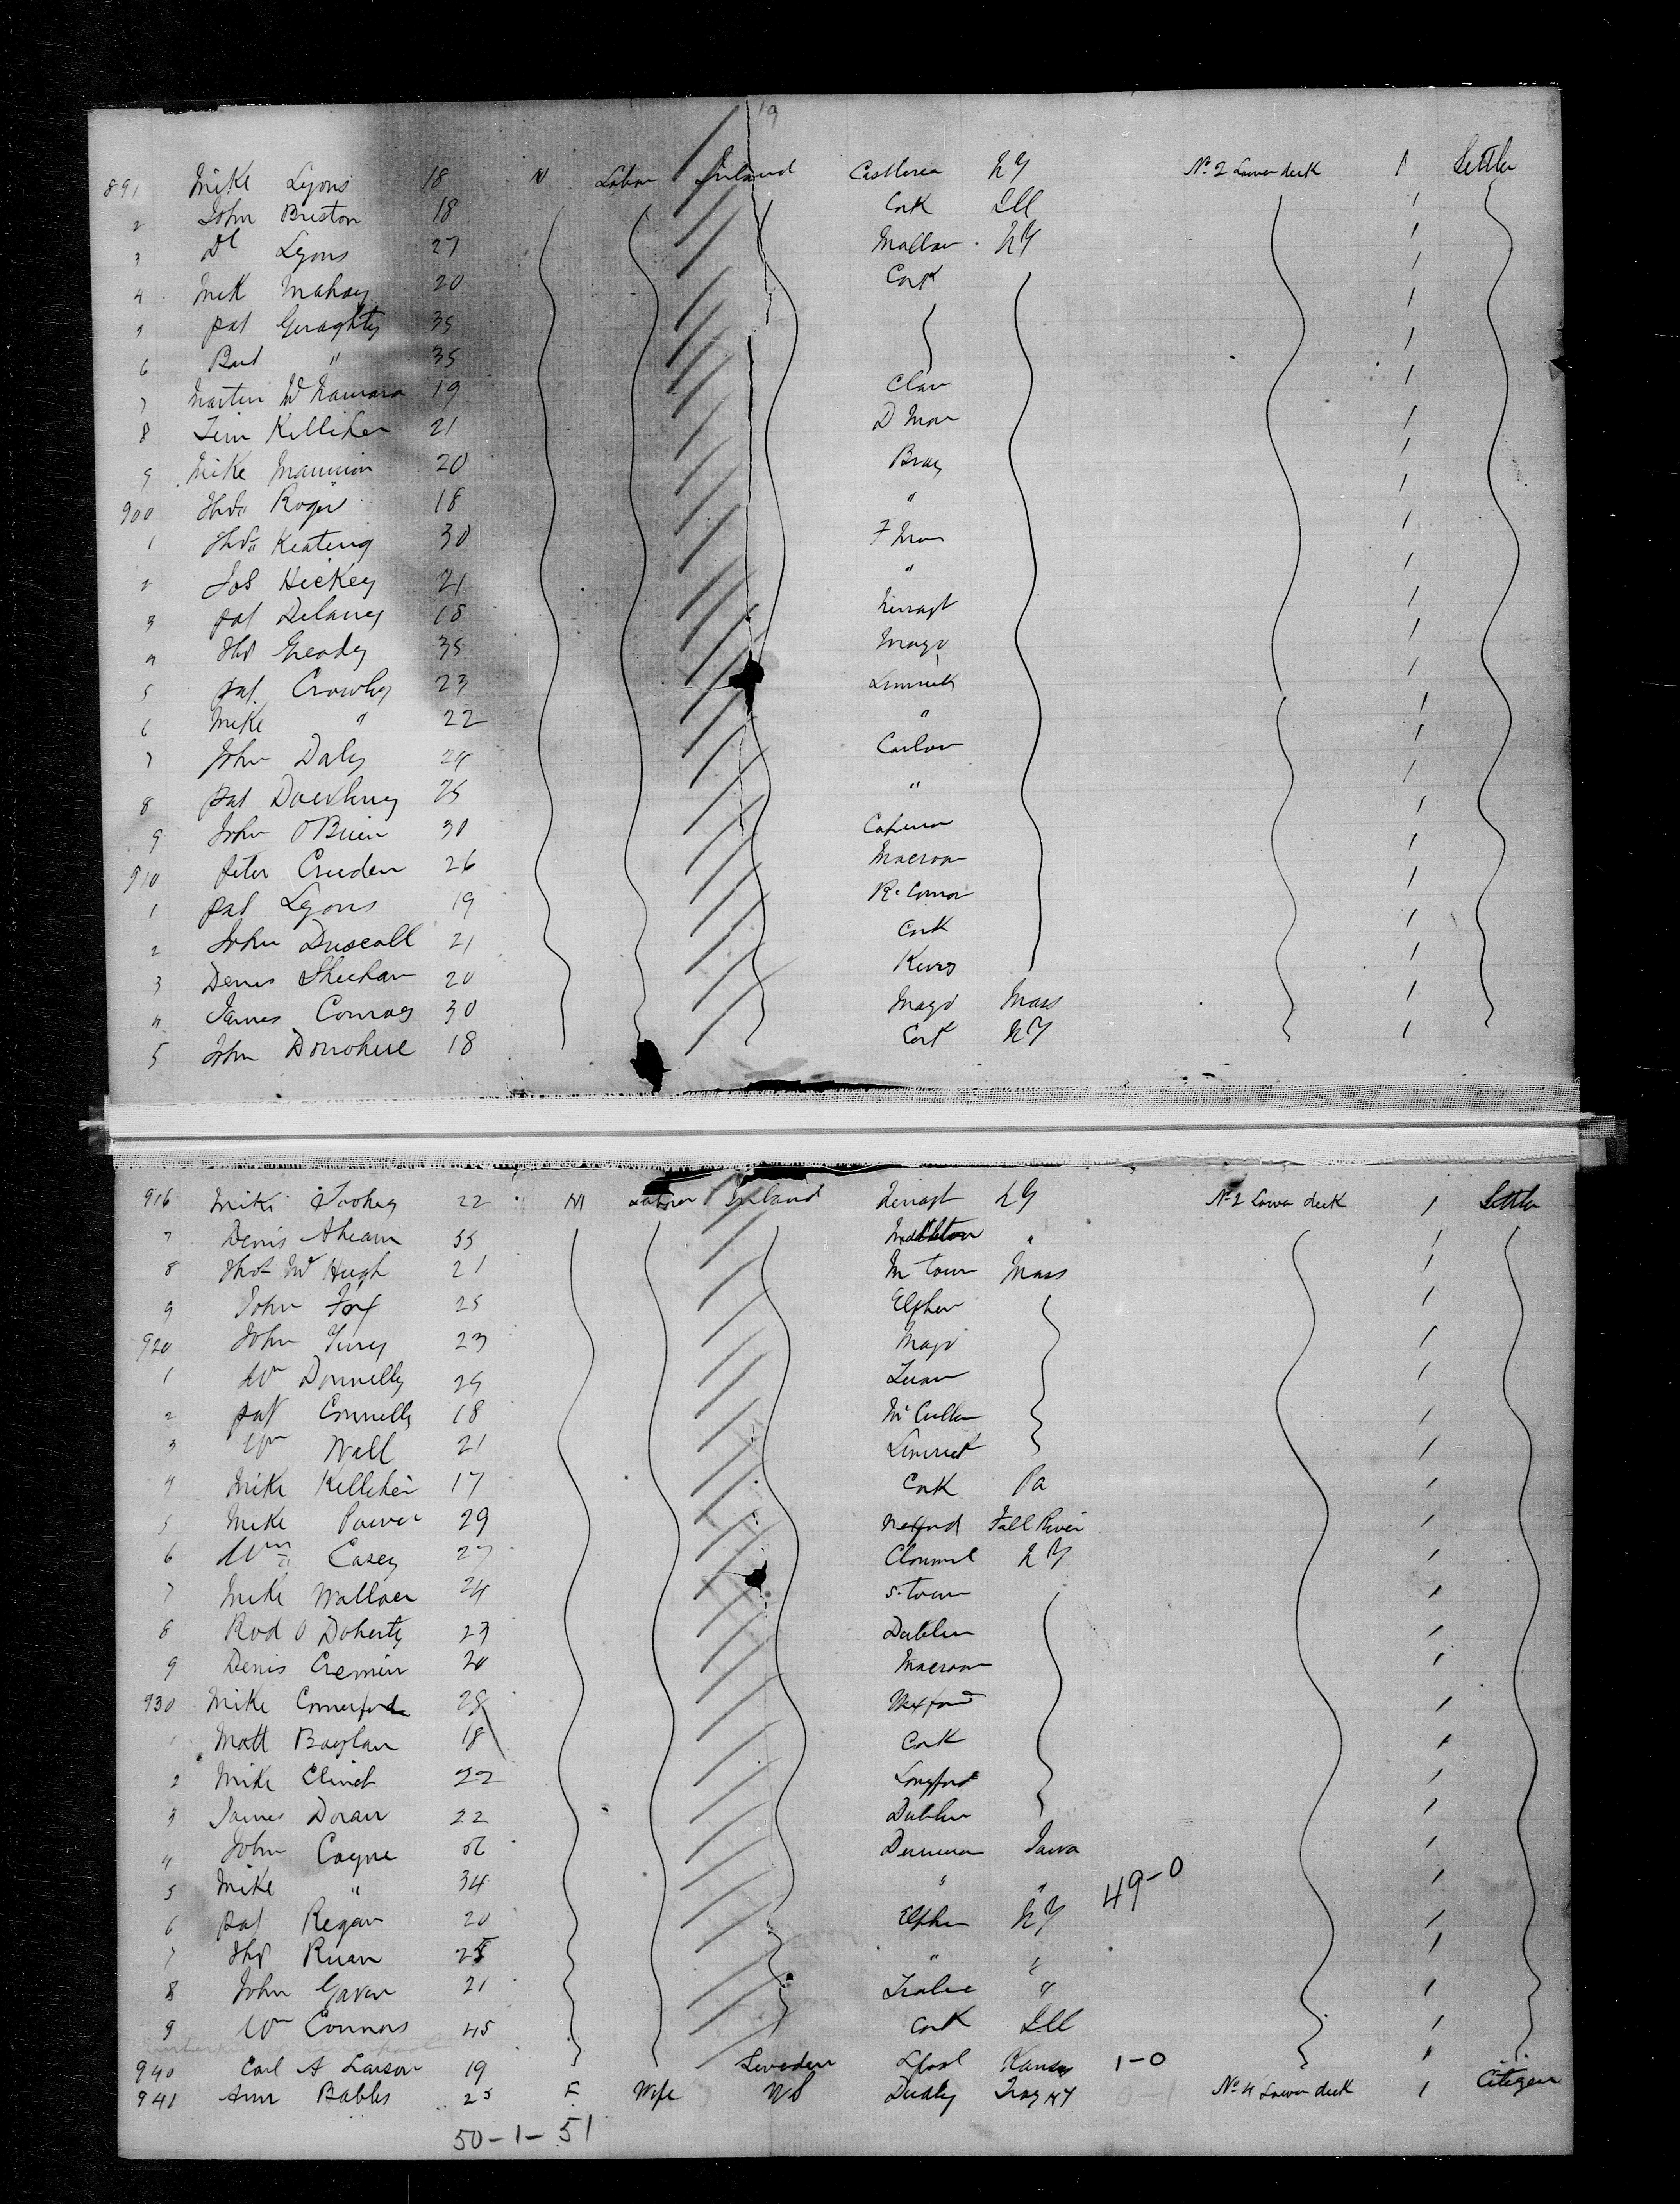 19
891 Mike Lyons 18 M Labor Ireland Castlerea NY No 2 Lower deck 1 Settler
2 John Briston 18 Cork Ill 1
3 Dl Lyons 27 Mallow NY 1
4 Mick Mahony 20 Cork 1
5 Pat Geraghty 35 1
6 Bart " 35 1
7 Martin McNamara 19 Clare 1
8 Tim Kelliher 21 D Mon 1
9 Mike Mannion 20 Bray 1
900 Thos Roger 18 " 1
1 Thos Keating 30 1
2 Jos Hickey 21 " 1
3 Pat Delaney 18 1
4 Thos Gready 35 Mayo 1
5 Pat Crowley 23 Limrick 1
6 Mike " 22 " 1
7 John Daly 24 Carlow 1
8 Pat 25 " 1
9 John O'Brien 30 1
910 Peter Cruden 26 Macroom 1
1 Pat Lyons 19 1
2 John Driscoll 21 Cork 1
3 Denis Sheehan 20 1
4 James Conroy 30 Mayo Mass 1
5 John Donohue 18 Cork NY 1
916 Mike Toohey 22 M Labor Ireland NY No 2 Lower deck 1 Settler
7 Denis Ahearn 55 Middleton " 1
8 Thos McHugh 21 M town Mass 1
9 John Fox 25 Elphin 1
920 John 23 Mayo 1
1 Wm Donnelly 25 Tuam 1
2 Pat Connelly 18 1
3 Wm Wall 21 Limrick 1
4 Mike Kelliher 17 Cork Pa 1
5 Mike Power 29 Wexford Fall River 1
6 Wm Casey 27 Clonmel NY 1
7 Mike Wallace 24 S. town 1
8 Rod O Doherty 23 Dublin 1
9 Denis Cremin 20 Macroom 1
930 Mike Comerford 25 Wexford 1
1 Matt Boylan 18 Cork 1
2 Mike Clinch 22 Longford 1
3 James Doran 22 Dublin 1
4 John Coyne 56 Iowa 1
5 Mike " 34 " " 49-0 1
6 Pat Regan 20 Elphin NY 1
7 Thos Ruan 25 " " 1
8 John Gavan 21 Tralee " 1
9 Wm Connors 45 Cork Ill 1
940 Carl A Larson 19 Sweden Lpool Kansas 1-0 1
941 Ann Babbs 25 F Wife US Dudley Troy NY No 4 Lower deck 1 Citizen
50-1-51